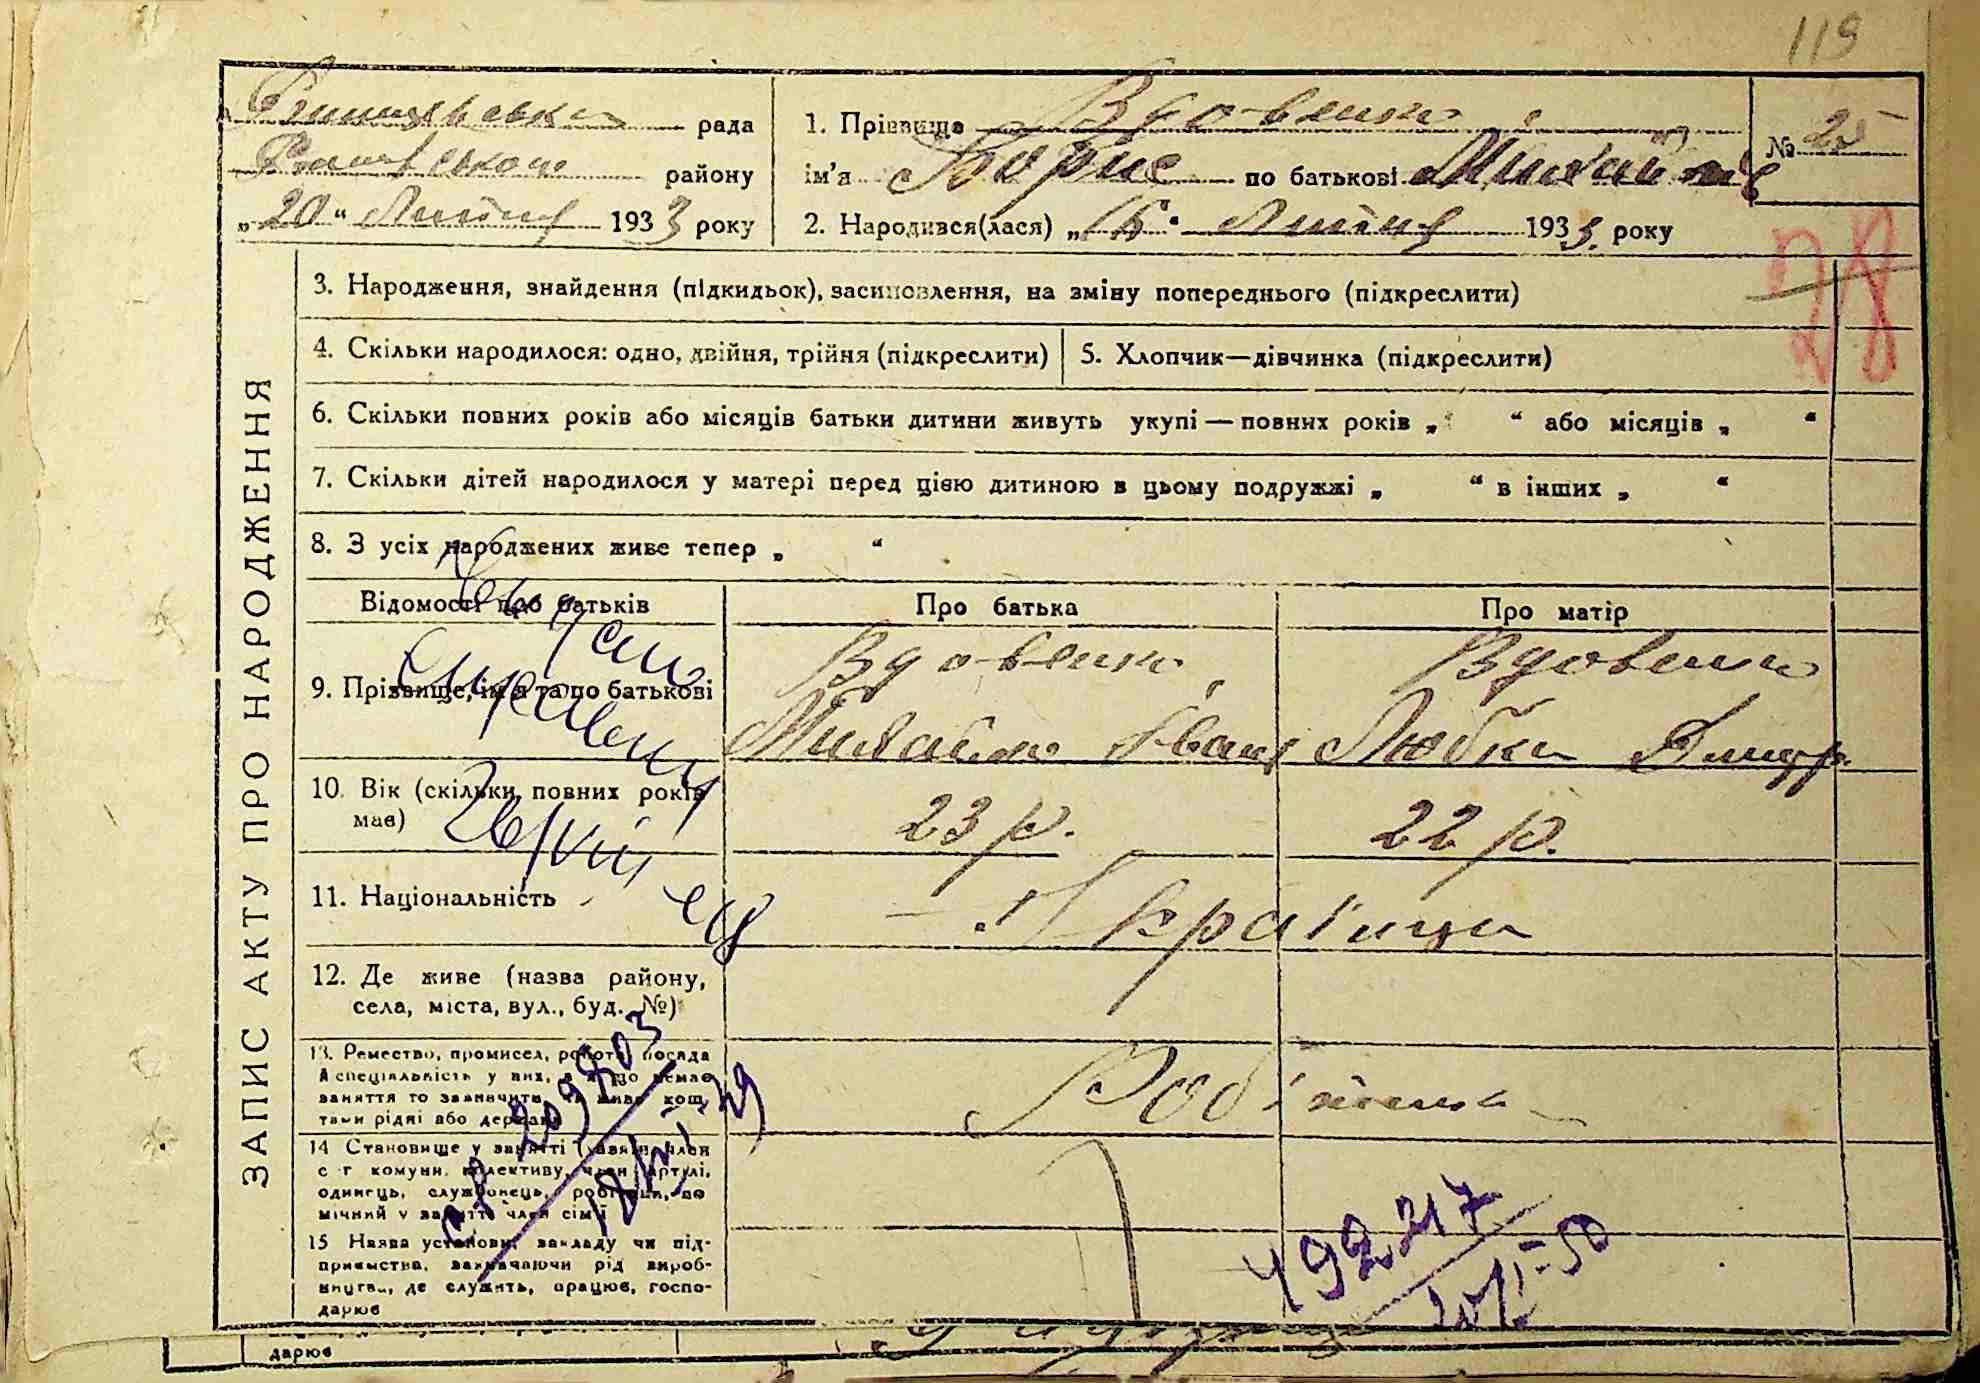 119
рада
1. Прізвище Вдовенко
№ 25
району
ім'я Борис по батькові Михайлов
„20“ Липня 1933 року
2. Народився(лася) „15“ Липня 1933 року
28
ЗАПИС АКТУ ПРО НАРОДЖЕННЯ
3. Народження, знайдення (підкидьок), засиновлення, на зміну попереднього (підкреслити)
4. Скільки народилося: одно, двійня, трійня (підкреслити)
5. Хлопчик—дівчинка (підкреслити)
6. Скільки повних років або місяців батьки дитини живуть укупі — повних років „ “ або місяців „ “
7. Скільки дітей народилося у матері перед цією дитиною в цьому подружжі „ “ в інших „ “
8. З усіх народжених живе тепер „ “
Відомості про батьків
Про батька
Про матір
9. Прізвище, ім'я та по батькові
Вдовенко
Михайло Іван
Вдовенко
Любка Дмитр.
10. Вік (скільки повних років має)
23 р.
22 р.
11. Національність
Українци
12. Де живе (назва району,
села, міста, вул., буд. №)
13. Ремество, промисел, робота, посада
й спеціальність у них, а якщо немає
заняття то зазначити, чи живе кош-
тами рідні або держави
Робітник
14 Становище у занятті (хазяїн, член
с г комуни, колективу, член артілі,
одинець, службовець, робітник, по
мічний у занятті член сім'ї
15 Назва установи, закладу чи під-
приємства, зазначаючи рід вироб-
ництва, де служить, працює, госпо-
дарює
492217
дарює